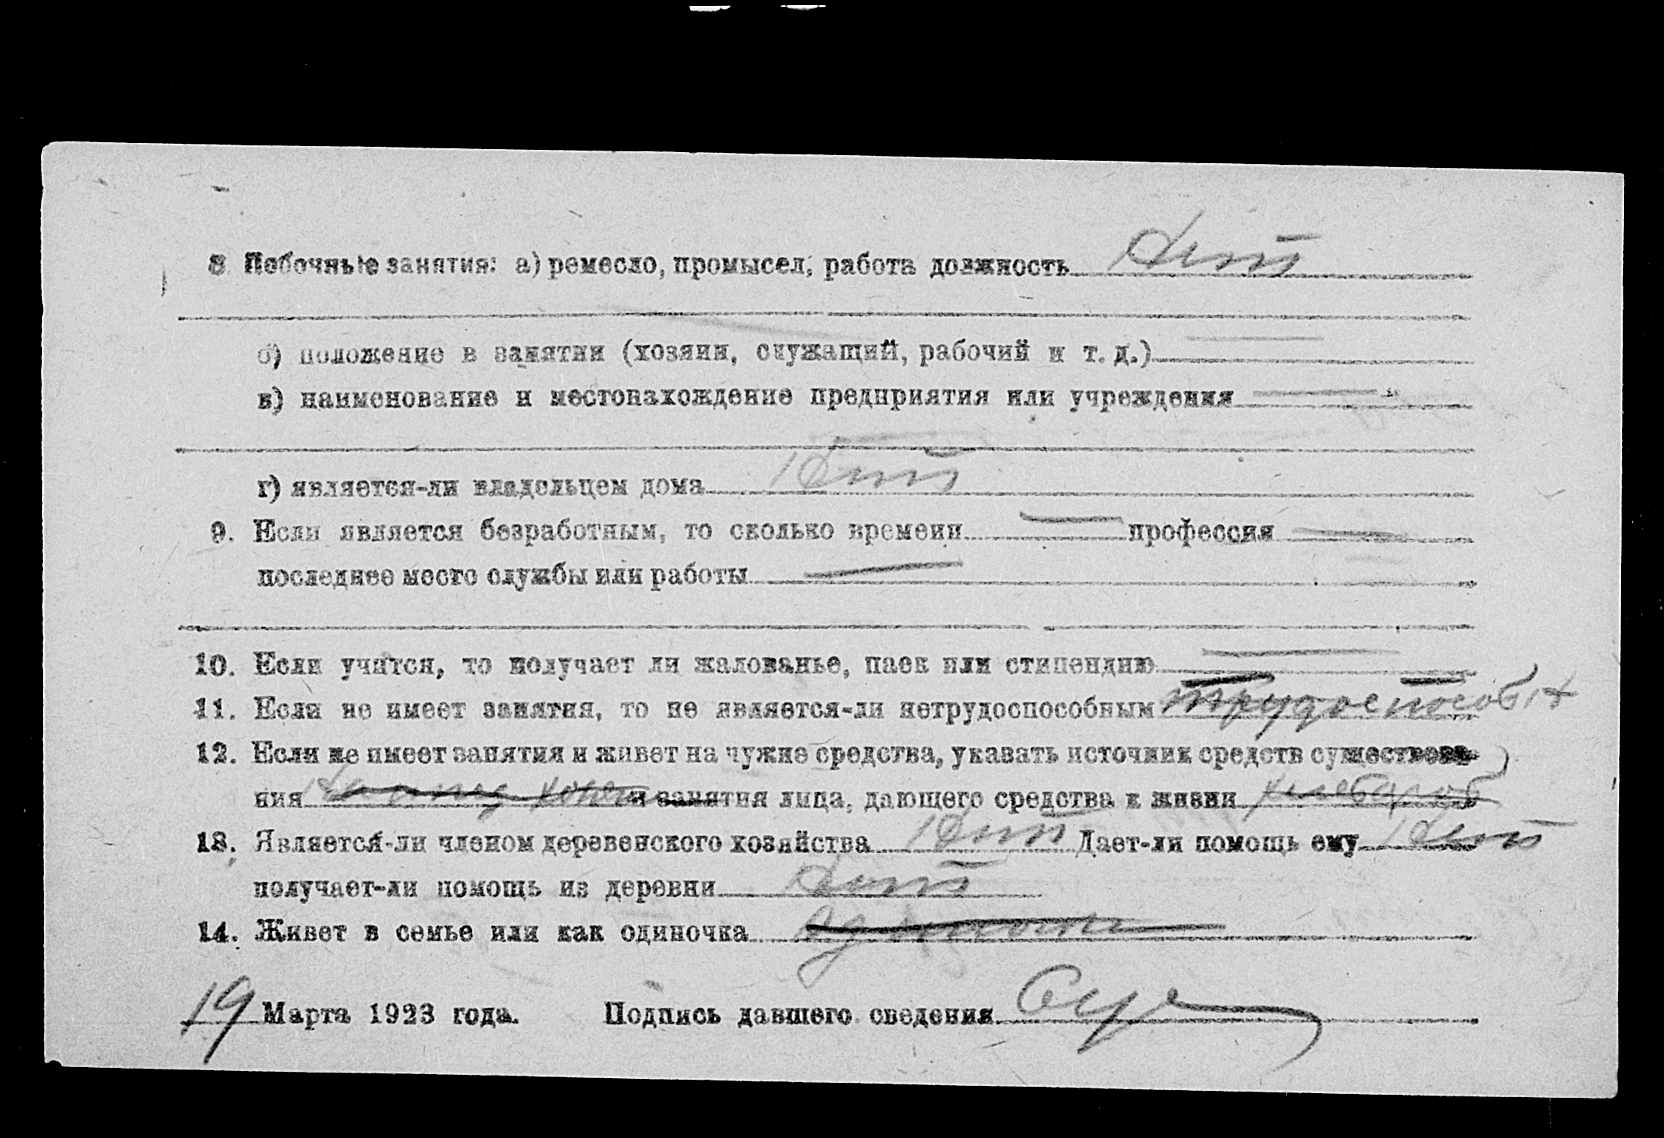 8 Побочные занятия: а) ремесло, промысел, работа должность Нет
б) положение в занятии (хозяин, служащий, рабочий и т. д.) —
в) наименование и местонахождение предприятия или учреждения — "
г) является-ли владельцем дома Нет
9. Если является безработным, то сколько времени — профессия —
последнее место службы или работы —
10. Если учится, то получает ли жалованье, паек или стипендию —
11. Если не имеет занятия, то не является-ли нетрудоспособным трудоспособн
12. Если не имеет занятия и живет на чужие средства, указать источник средств существова-
ния и занятия лица, дающего средства к жизни хлебороб
13. Является-ли членом деревенского хозяйства Нет Дает-ли помощь ему Нет
получает-ли помощь из деревни Нет
14. Живет в семье или как одиночка
19 Марта 1923 года. Подпись давшего сведения